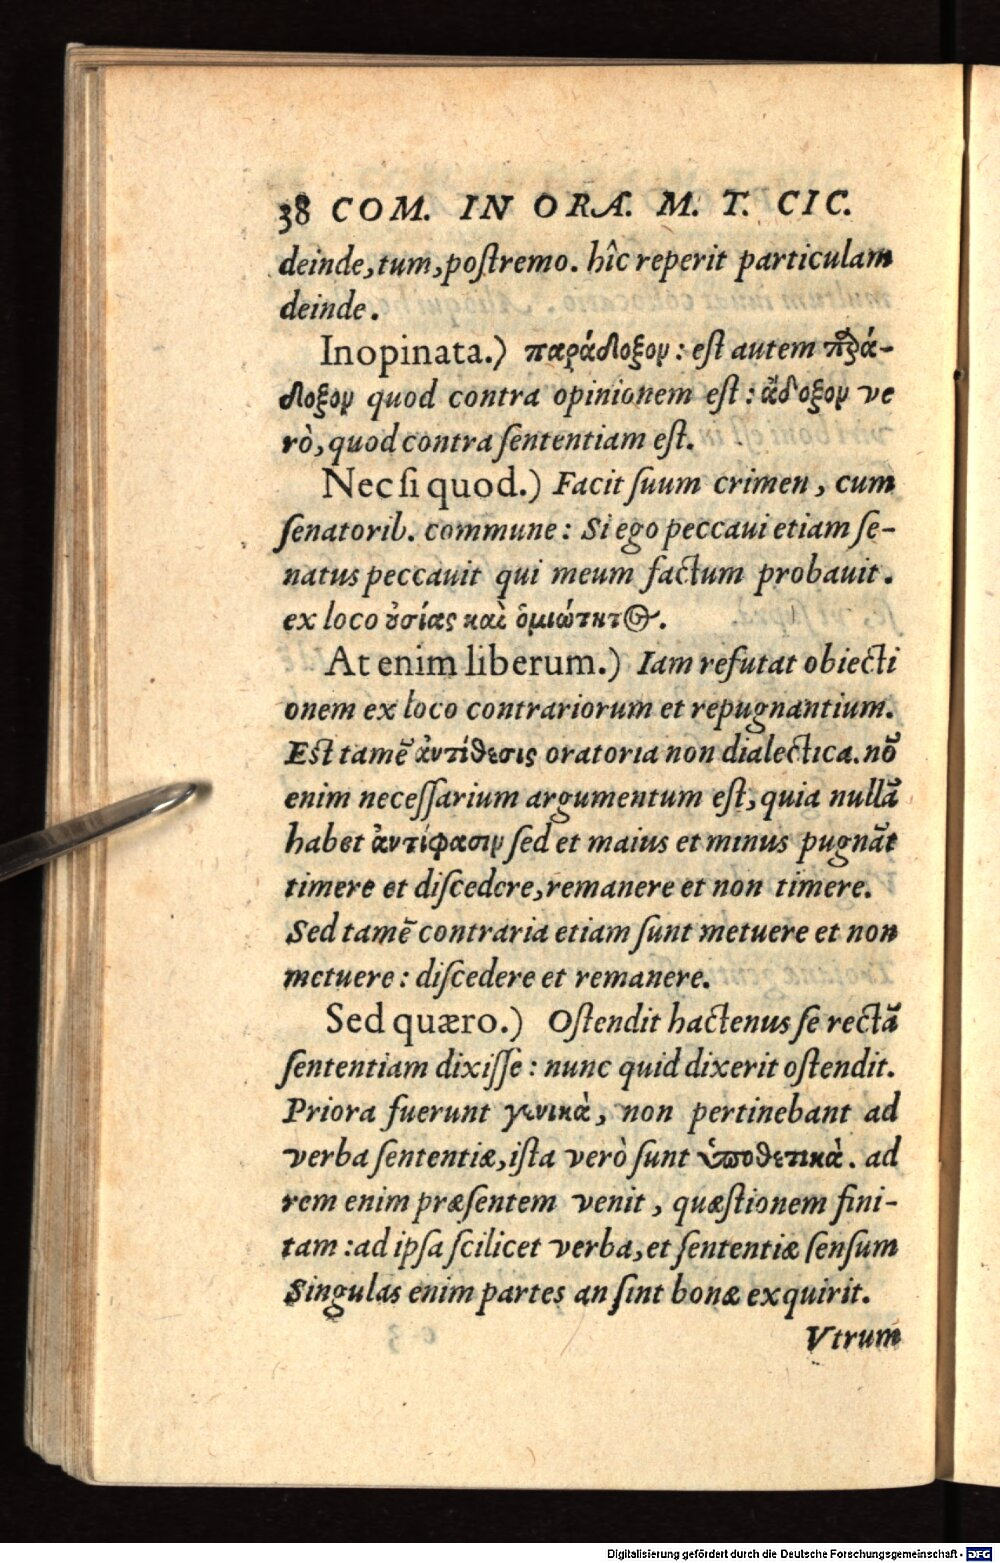 38 COM. IN ORA. M. T. CIC.
deinde, tum, poſtremo. hîc reperit particulam
deinde.
Inopinata.) παράδοξον: eſt autem παρά-
δοξον quod contra opinionem eſt: ἄδοξον ve
rò, quod contra ſententiam eſt.
Nec ſi quod.) Facit ſuum crimen, cum
ſenatorib. commune: Si ego peccaui etiam ſe-
natus peccauit qui meum factum probauit.
ex loco ὀσίας καὶ ὁμιώτητος.
At enim liberum.) Iam refutat obiecti
onem ex loco contrariorum et repugnantium.
Eſt tamē ἀντίθεσις oratoria non dialectica. nō
enim neceſſarium argumentum eſt, quia nullā
habet ἀντίφασιν ſed et maius et minus pugnāt
timere et diſcedere, remanere et non timere.
Sed tamē contraria etiam ſunt metuere et non
metuere: diſcedere et remanere.
Sed quæro.) Oſtendit hactenus ſe rectā
ſententiam dixiſſe: nunc quid dixerit oſtendit.
Priora fuerunt γενικὰ, non pertinebant ad
verba ſententiæ, iſta verò ſunt ὑποθετικὰ. ad
rem enim præſentem venit, quæſtionem fini-
tam: ad ipſa ſcilicet verba, et ſententiæ ſenſum
Singulas enim partes an ſint bonæ exquirit.
Vtrum
Digitalisierung gefördert durch die Deutsche Forschungsgemeinschaft - DFG